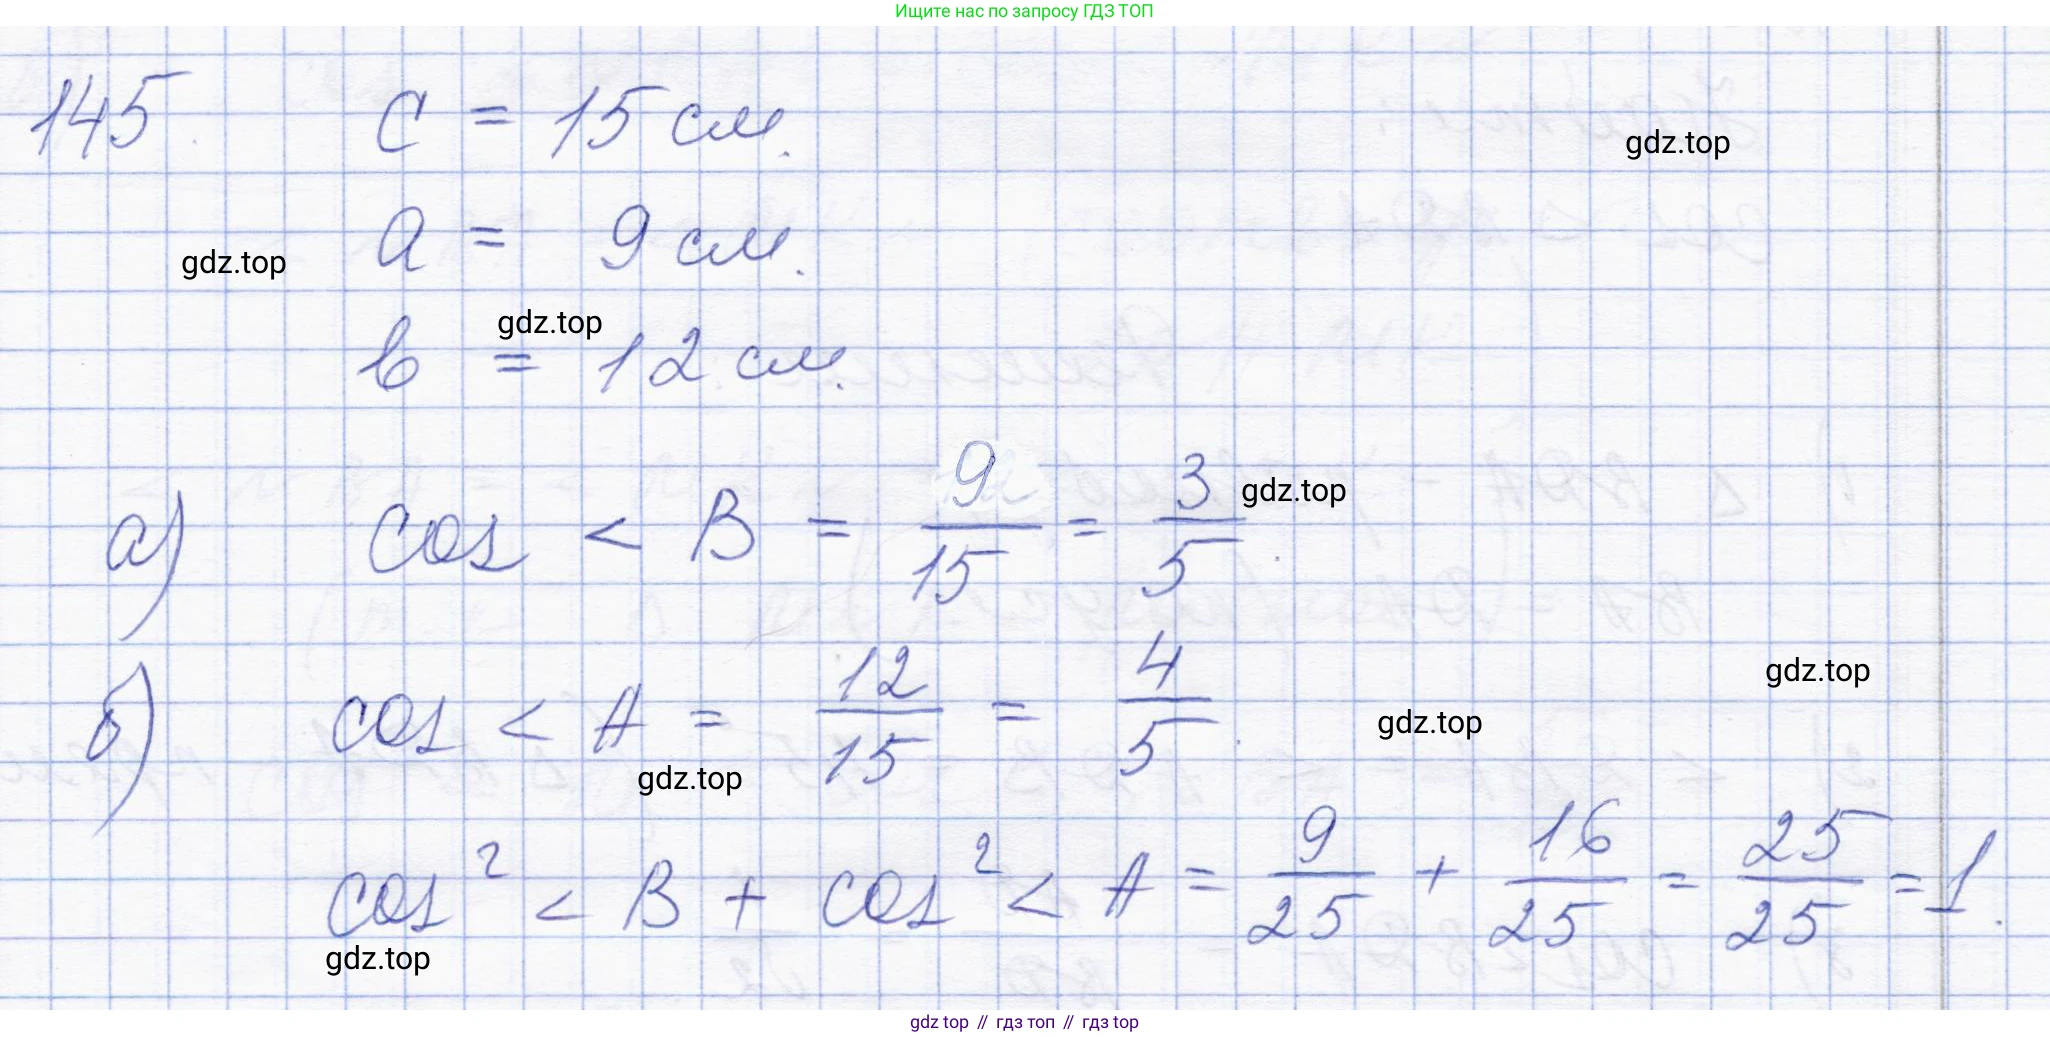 Ищите нас по запросу ГДЗ ТОП
145. c = 15 см.
gdz.top
a = 9 см.
gdz.top
gdz.top
b = 12 см.
а) cos < B = 9/15 = 3/5.
gdz.top
б) cos < A = 12/15 = 4/5.
gdz.top
gdz.top
gdz.top
cos² < B + cos² < A = 9/25 + 16/25 = 25/25 = 1.
gdz.top
gdz top // гдз топ // гдз top